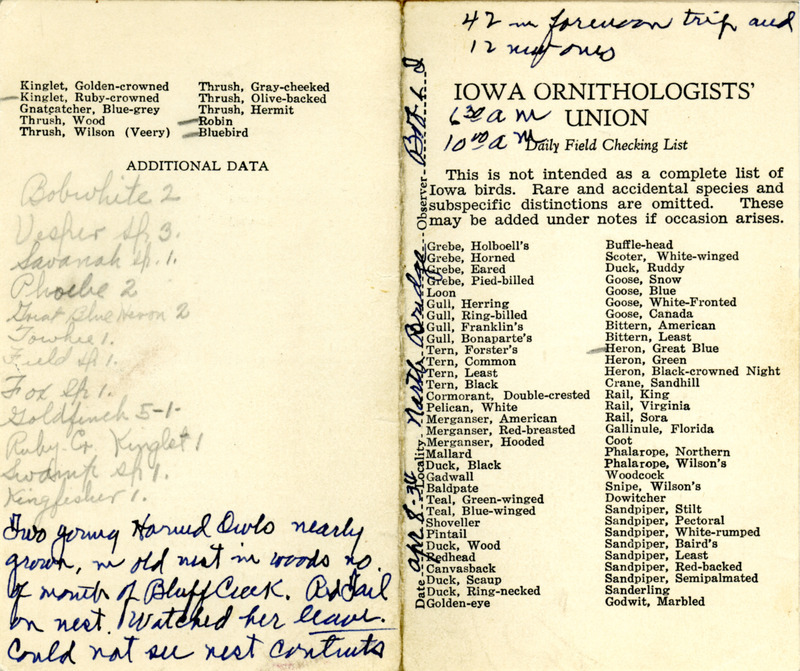 Kinglet, Golden-crowned
Kinglet, Ruby-crowned
Gnatcatcher, Blue-grey
Thrush, Wood
Thrush, Wilson (Veery)
Thrush, Gray-cheeked
Thrush, Olive-backed
Thrush, Hermit
Robin
Bluebird
ADDITIONAL DATA
Bobwhite 2
Vesper sp. 3.
Savanah sp. 1.
Phoebe 2
Great Blue Heron 2
Towhee 1.
Field sp 1.
Fox sp 1.
Goldfinch 5-1-
Ruby-Cr. Kinglet 1
Swamp sp 1.
Kingfisher 1.
Two young Horned Owls nearly
grown, in old nest in woods no.
of mouth of Bluff Creek. Red Tail
on nest. Watched her leave.
Could not see nest contents
42 in forenoon trip and
12 new ones
IOWA ORNITHOLOGISTS'
UNION
6 30 a m
10 00 a m
Daily Field Checking List
This is not intended as a complete list of
Iowa birds. Rare and accidental species and
subspecific distinctions are omitted. These
may be added under notes if occasion arises.
Date apr 8-34 Locality North Bridge Observer
Grebe, Holboell's
Grebe, Horned
Grebe, Eared
Grebe, Pied-billed
Loon
Gull, Herring
Gull, Ring-billed
Gull, Franklin's
Gull, Bonaparte's
Tern, Forster's
Tern, Common
Tern, Least
Tern, Black
Cormorant, Double-crested
Pelican, White
Merganser, American
Merganser, Red-breasted
Merganser, Hooded
Mallard
Duck, Black
Gadwall
Baldpate
Teal, Green-winged
Teal, Blue-winged
Shoveller
Pintail
Duck, Wood
Redhead
Canvasback
Duck, Scaup
Duck, Ring-necked
Golden-eye
Buffle-head
Scoter, White-winged
Duck, Ruddy
Goose, Snow
Goose, Blue
Goose, White-Fronted
Goose, Canada
Bittern, American
Bittern, Least
Heron, Great Blue
Heron, Green
Heron, Black-crowned Night
Crane, Sandhill
Rail, King
Rail, Virginia
Rail, Sora
Gallinule, Florida
Coot
Phalarope, Northern
Phalarope, Wilson's
Woodcock
Snipe, Wilson's
Dowitcher
Sandpiper, Stilt
Sandpiper, Pectoral
Sandpiper, White-rumped
Sandpiper, Baird's
Sandpiper, Least
Sandpiper, Red-backed
Sandpiper, Semipalmated
Sanderling
Godwit, Marbled